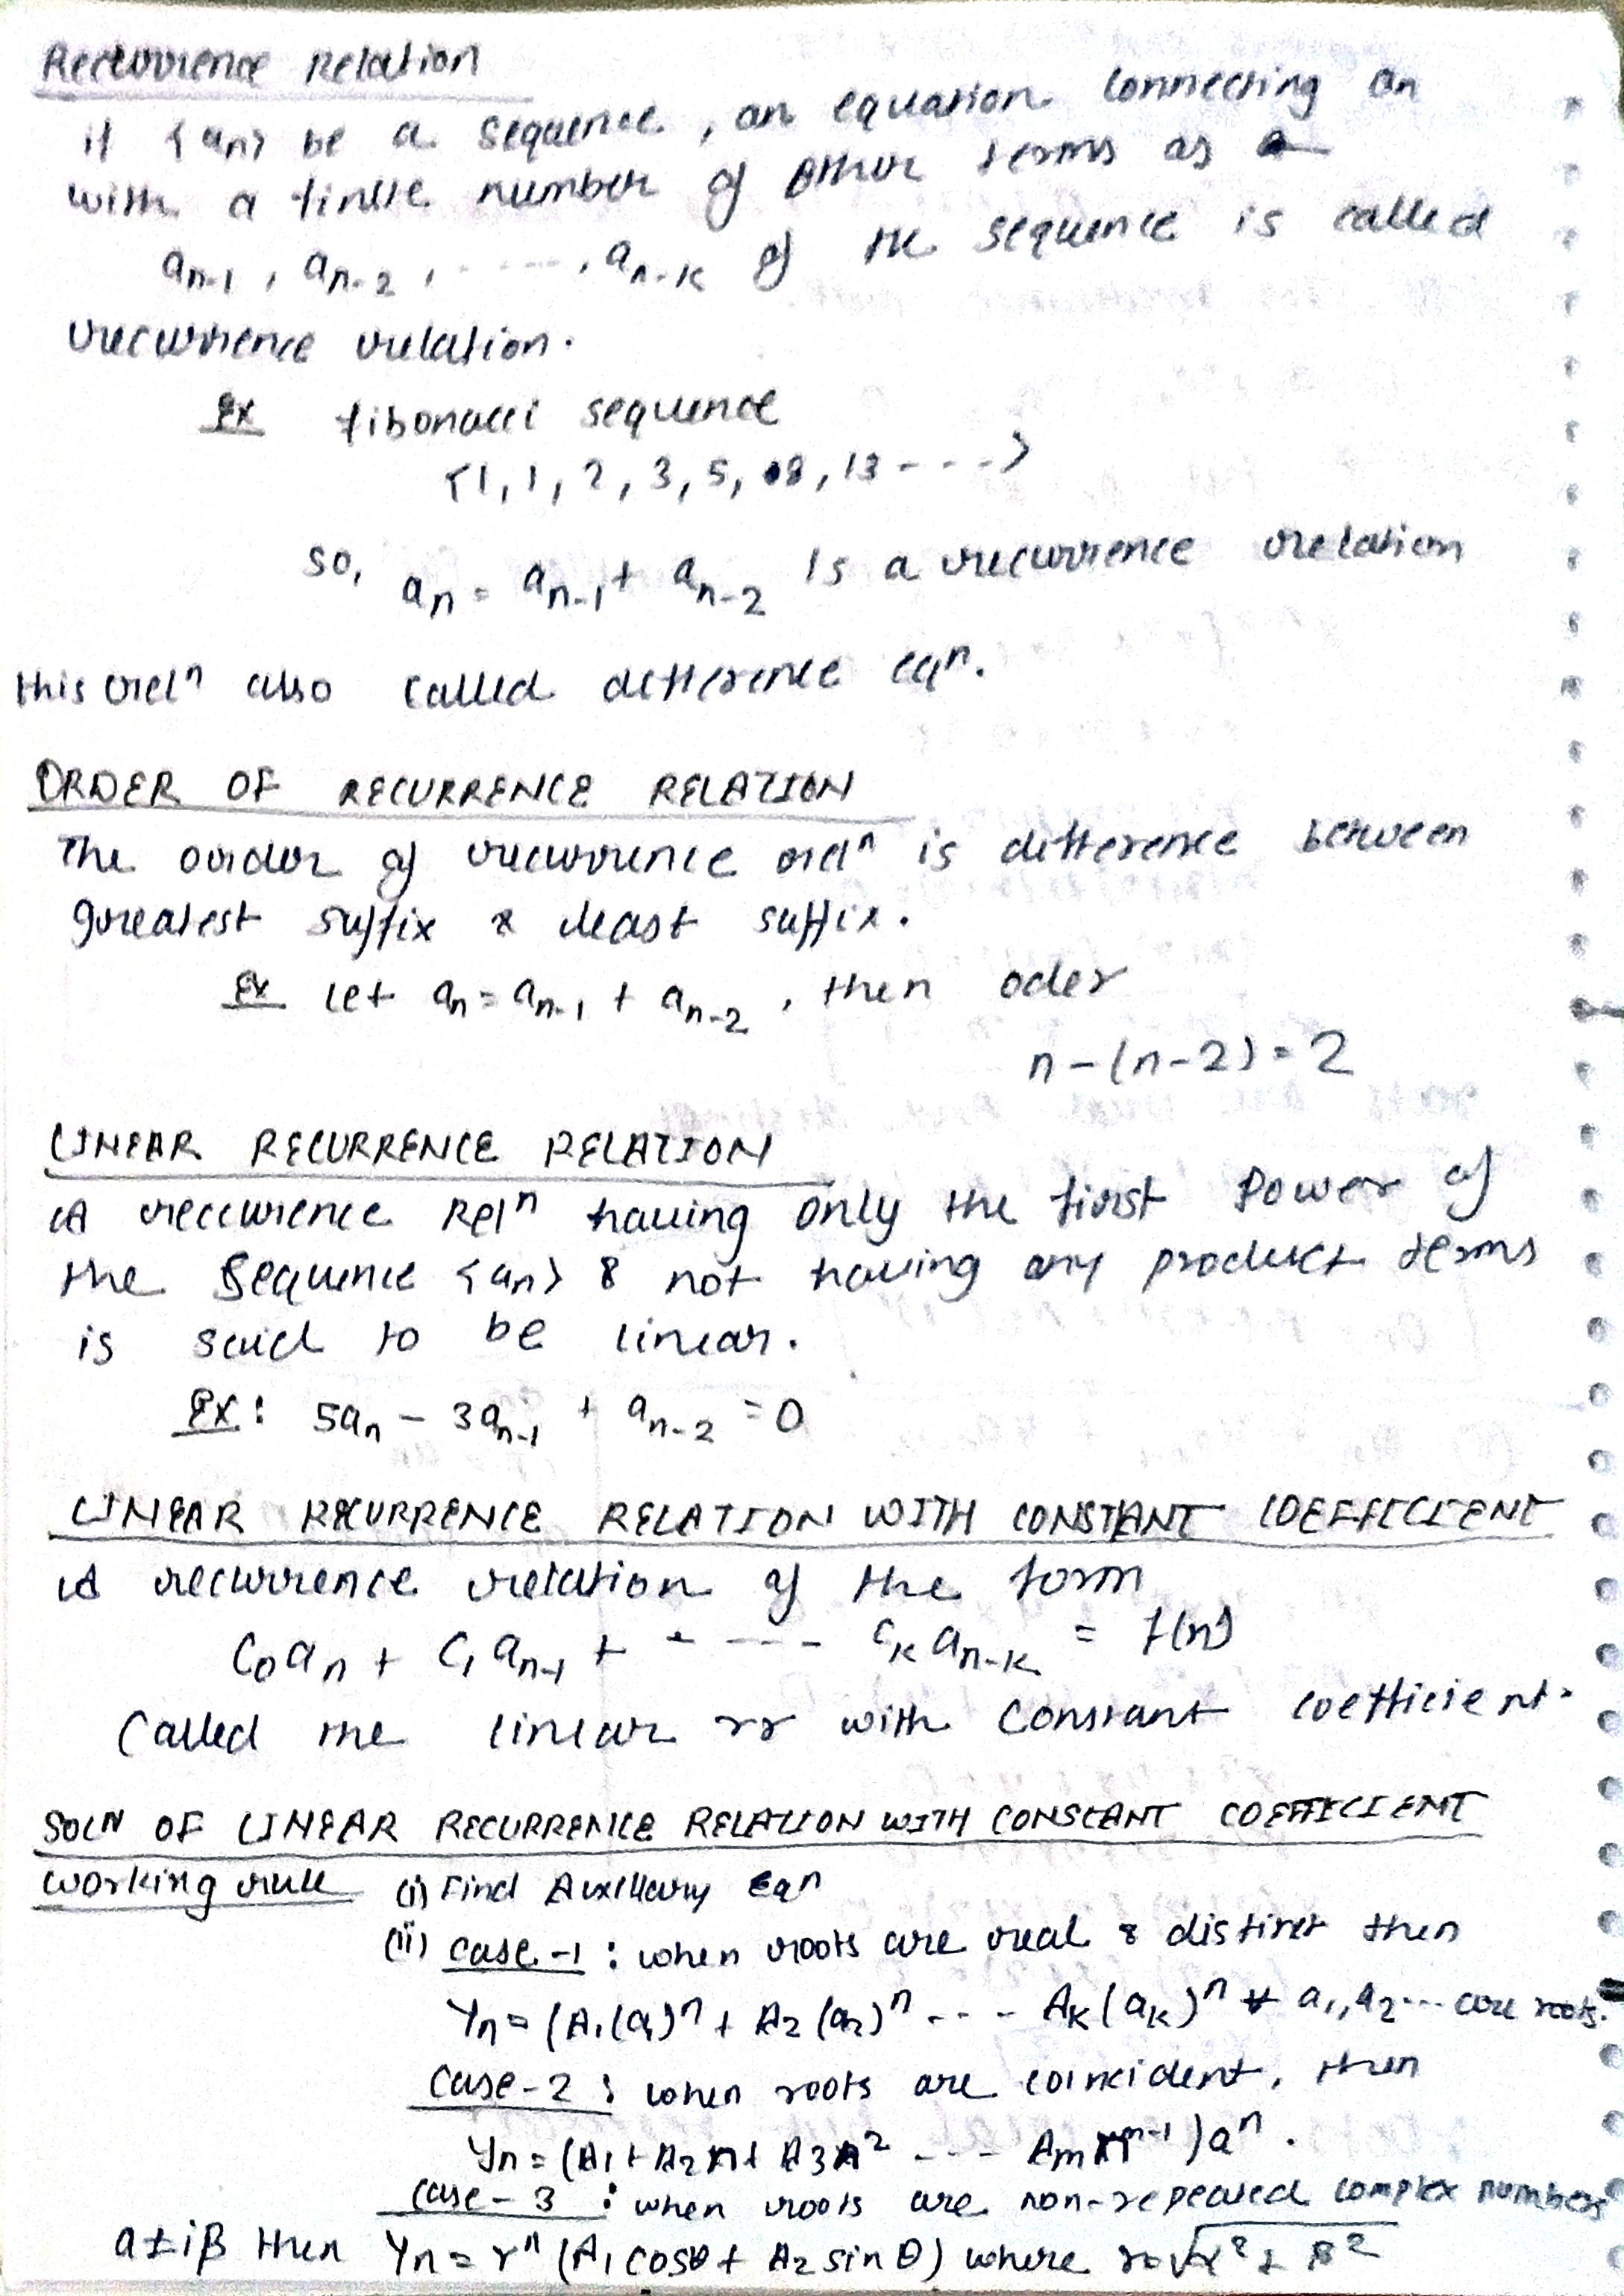 Recurrence Relation
if {an} be a sequence, an equation connecting an
with a finite number of other terms as
an-1, an-2, ....., an-k of the sequence is called
recurrence relation.
Ex fibonacci sequence
<1, 1, 2, 3, 5, 8, 13 - - - >
so, an = an-1 + an-2 is a recurrence relation
this relⁿ also called difference eqⁿ.
ORDER OF RECURRENCE RELATION
The order of recurrence relⁿ is difference between
greatest suffix & least suffix.
Ex let an = an-1 + an-2, then oder
n-(n-2) = 2
LINEAR RECURRENCE RELATION
A reccurence Relⁿ having only the first power of
the sequence <an> & not having any product terms
is said to be linear.
Ex: 5an - 3an-1 + an-2 = 0
LINEAR RECURRENCE RELATION WITH CONSTANT COEFFICIENT
A recurrence relation of the form
C0an + C1an-1 + - - - - Ckan-k = f(n)
Called the linear rr with constant coefficient.
SOLN OF LINEAR RECURRENCE RELATION WITH CONSTANT COEFFICIENT
working rule (i) Find Auxillary Eqn
(ii) case-1 : when roots are real & distinct then
Yn = (A1(a1)ⁿ + A2(a2)ⁿ - - - Ak(ak)ⁿ ∀ a1, a2 ... are roots.
case-2 : when roots are coincident, then
Yn = (A1 + A2n + A3n² - - - Amnᵐ⁻¹)aⁿ.
case-3 : when roots are non-repeated complex numbers
α±iβ then Yn = rⁿ (A1 cosθ + A2 sinθ) where r=√α²+β²